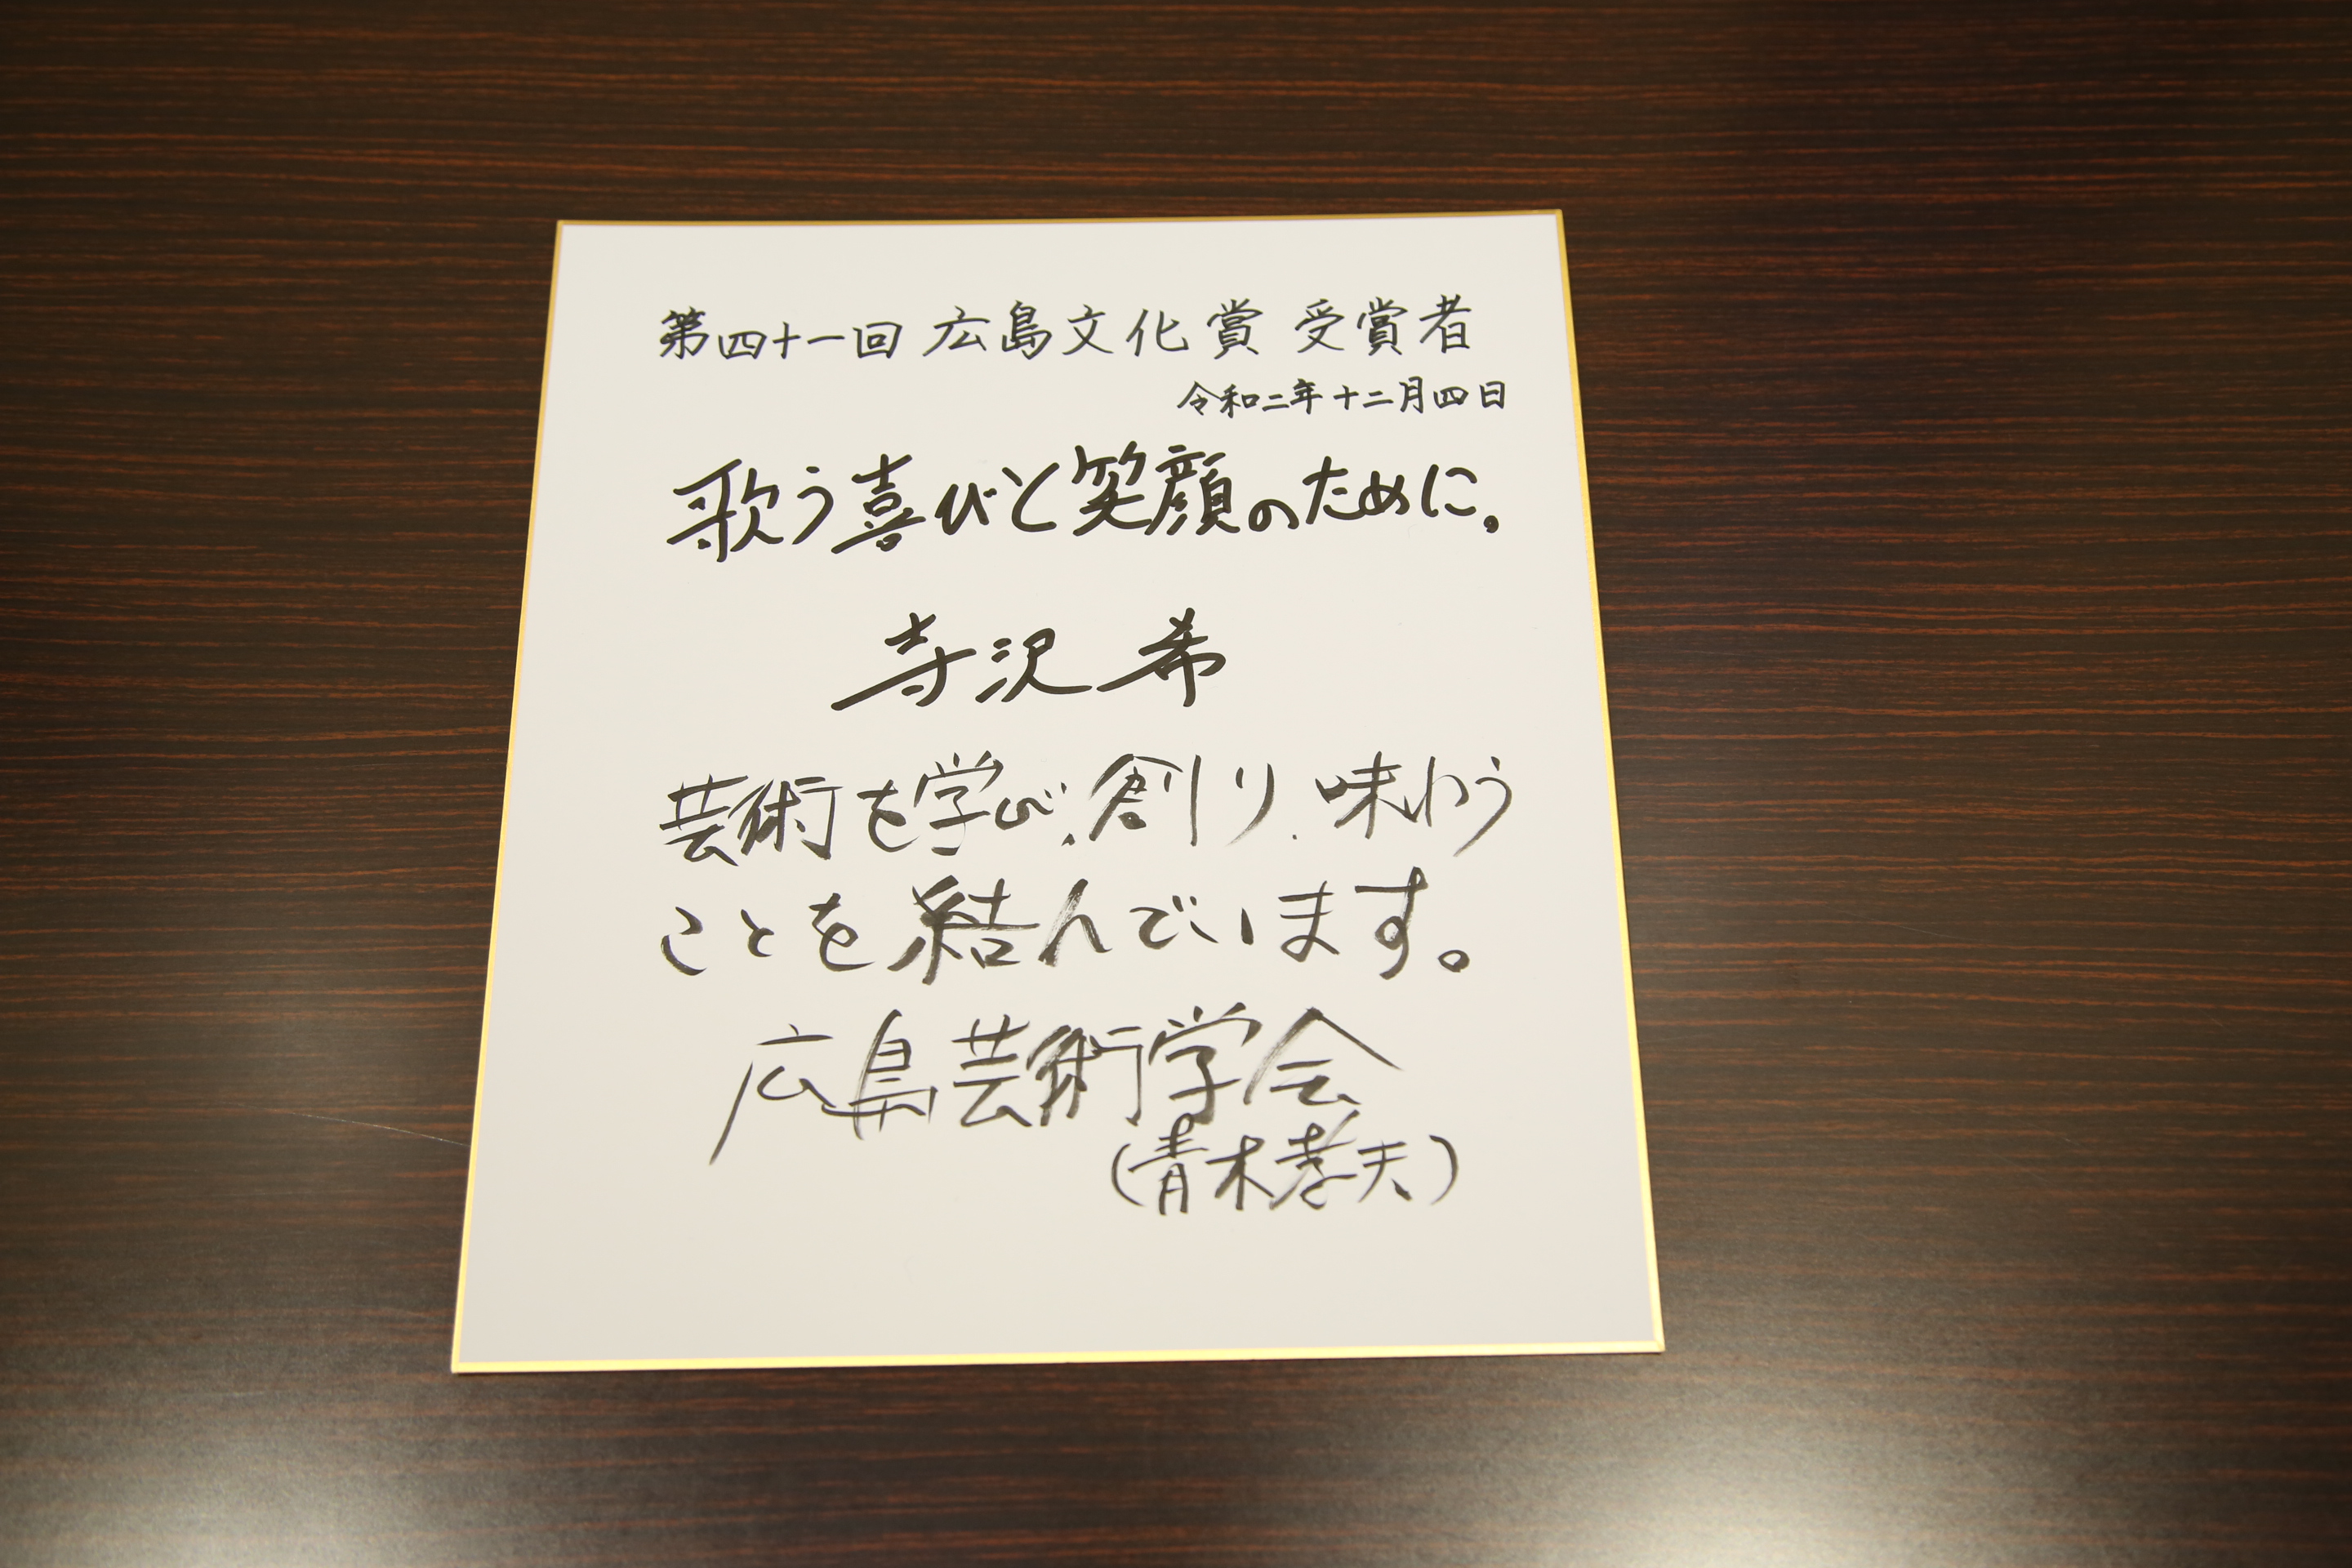 第四十一回 広島文化賞 受賞者
令和二年十二月四日
歌う喜びと笑顔のために。
寺沢希
芸術を学び、創り、味わう
ことを結んでいます。
広島芸術学会
(青木孝夫)